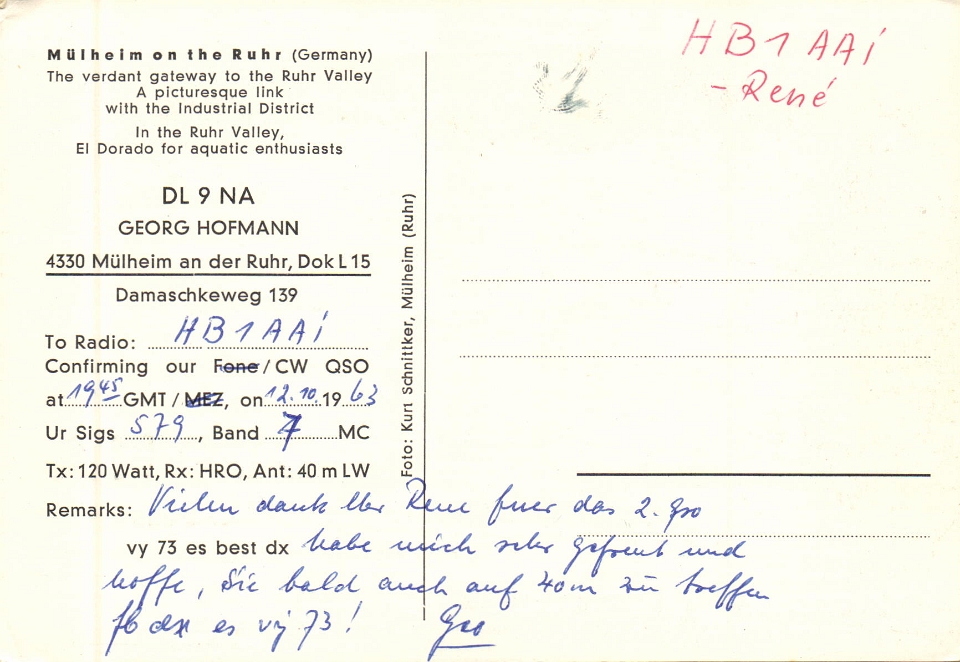 Mülheim on the Ruhr (Germany)
The verdant gateway to the Ruhr Valley
A picturesque link
with the Industrial District
In the Ruhr Valley,
El Dorado for aquatic enthusiasts
DL 9 NA
GEORG HOFMANN
4330 Mülheim an der Ruhr, Dok L 15
Damaschkeweg 139
To Radio: HB1AAi
Confirming our Fone / CW QSO
at 19 45 GMT / MEZ, on 12.10. 19 63
Ur Sigs 579, Band 7 MC
Tx: 120 Watt, Rx: HRO, Ant: 40 m LW
Remarks: Vielen dank lbr Rene fuer das 2. qso
vy 73 es best dx habe mich sehr gefreut und
hoffe, Sie bald auch auf 40m zu treffen
fb dx es vy 73!
Foto: Kurt Schnittker, Mülheim (Ruhr)
HB1AAi
- René